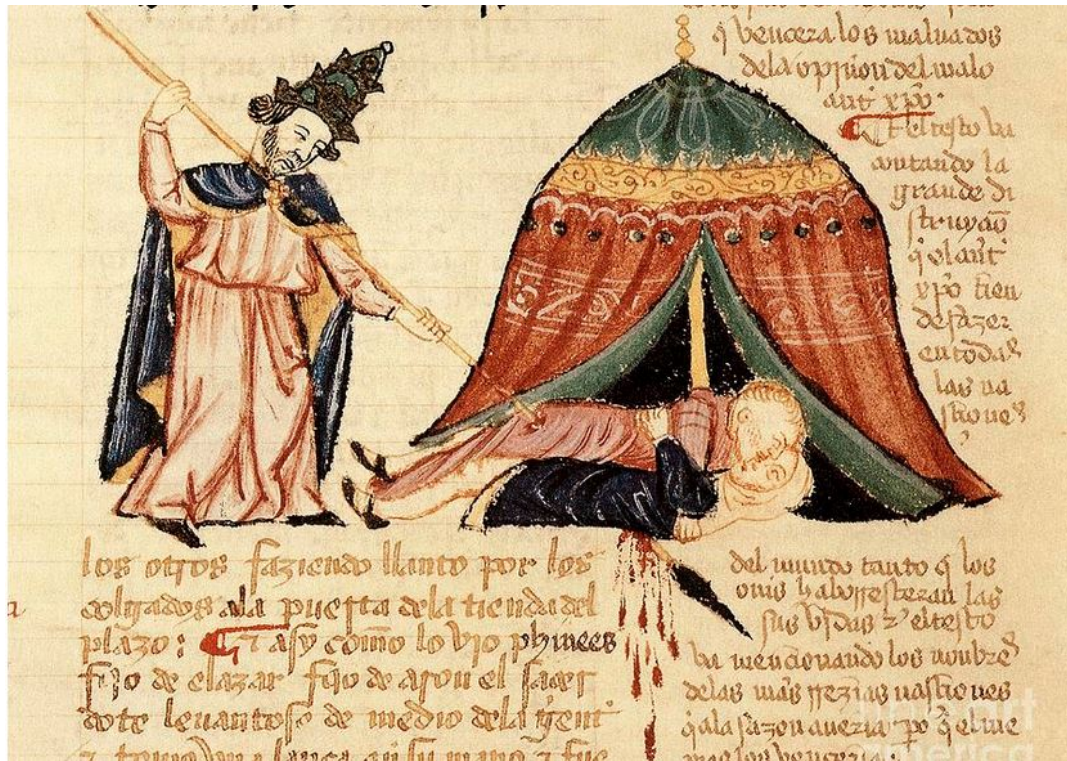 q̃ vencera los maluados
dela opinion del malo
ant xpõ.
¶ Et el testo va
contando la
grande di
struyçiõ
q̃ el ant
xpõ tien
de fazer
en todas
las na
sçiones
los otros faziendo llanto por los
colgados ala puerta dela tienda del
plazo: ¶ Et asy commo lo vio phinees
fijo de elazar fijo de aron el sacer
dote leuantose de medio dela gent
⁊ tomo vna lança en su mano ⁊ fue
del mundo tanto q̃ los
omes aborresçeran las
sus vidas ⁊ el testo
va mencionando los nonbres
delas mas rrezias nasçiones
q̃ ala sazon aueria po q̃ el
mas los venceria:
fine art
america